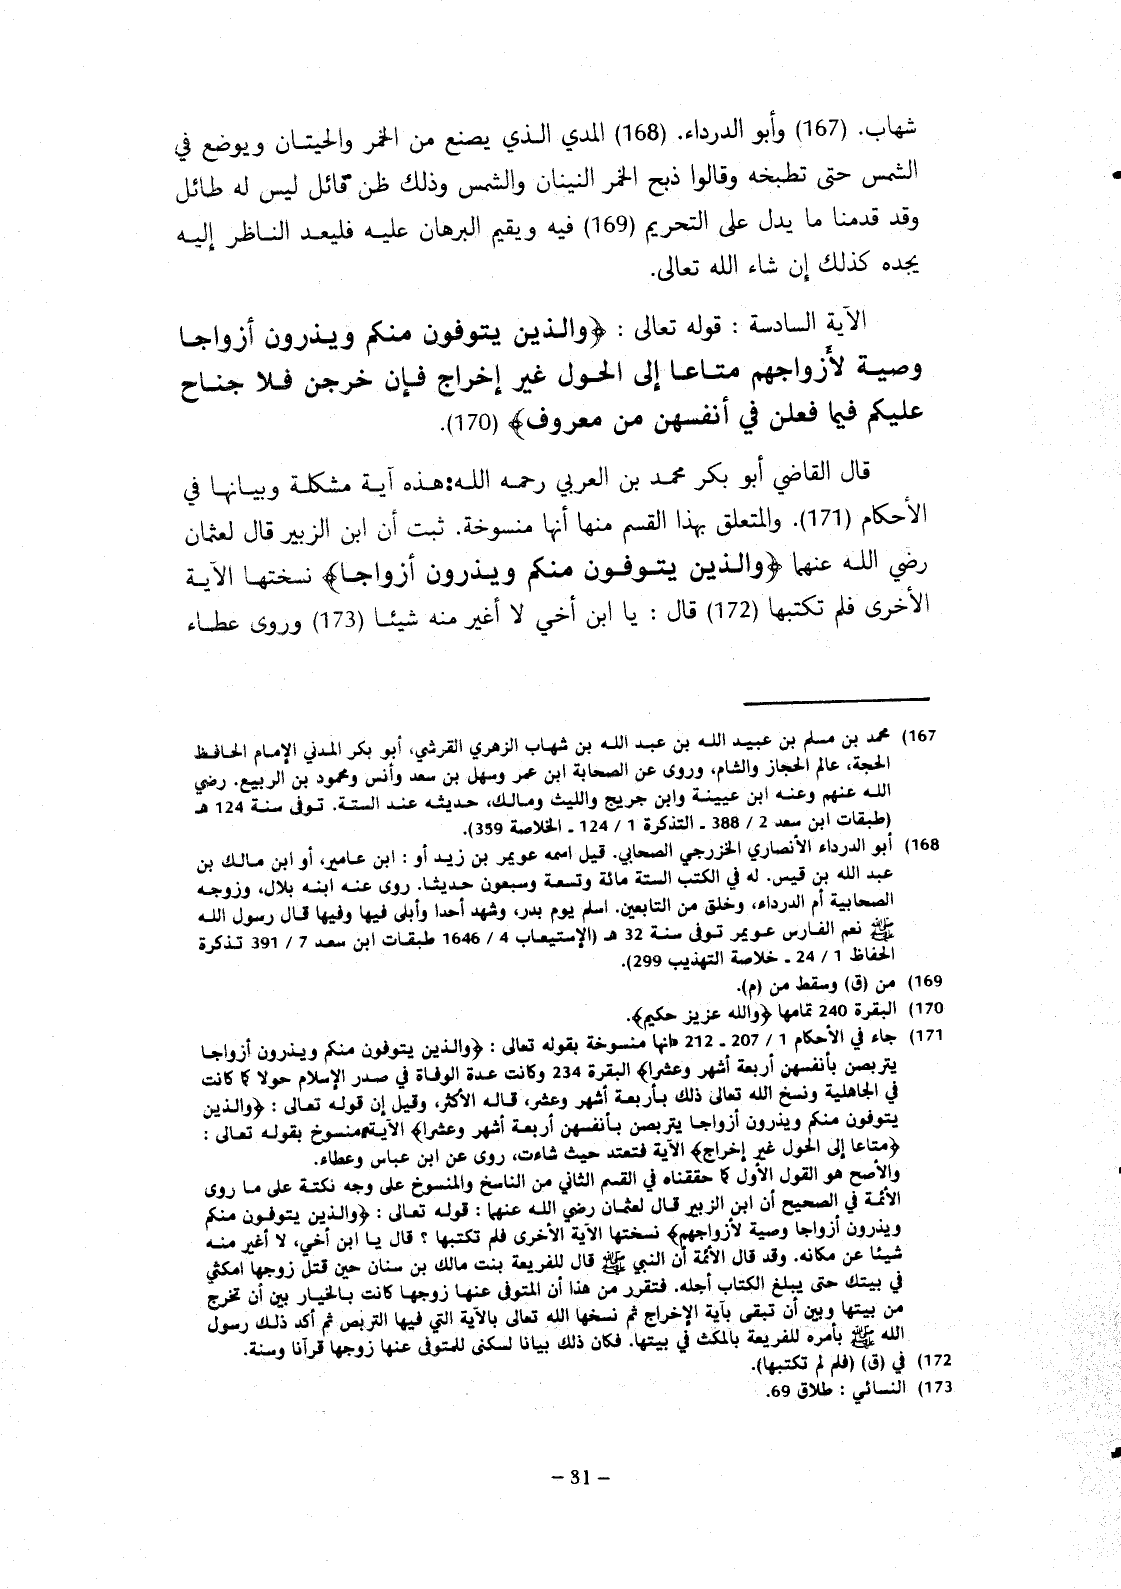 شهاب. (167) وأبو الدرداء. (168) المدي الذي يصنع من الخمر والحيتان ويوضع في
الشمس حتى تطبخه وقالوا ذبح الخمر النينان والشمس وذلك ظن قائل ليس له طائل
وقد قدمنا ما يدل على التحريم (169) فيه ويقيم البرهان عليه فليعد الناظر إليه
يجده كذلك إن شاء الله تعالى.
الآية السادسة : قوله تعالى : ﴿والذين يتوفون منكم ويذرون أزواجا
وصية لأزواجهم متاعا إلى الحول غير إخراج فإن خرجن فلا جناح
عليكم فيما فعلن في أنفسهن من معروف﴾ (170).
قال القاضي أبو بكر محمد بن العربي رحمه الله:هذه آية مشكلة وبيانها في
الأحكام (171). والمتعلق بهذا القسم منها أنها منسوخة. ثبت أن ابن الزبير قال لعثمان
رضي الله عنهما ﴿والذين يتوفون منكم ويذرون أزواجا﴾ نسختها الآية
الأخرى فلم تكتبها (172) قال : يا ابن أخي لا أغير منه شيئا (173) وروى عطاء
167) محمد بن مسلم بن عبيد الله بن عبد الله بن شهاب الزهري القرشي، أبو بكر المدني الإمام الحافظ
الحجة، عالم الحجاز والشام، وروى عن الصحابة ابن عمر وسهل بن سعد وأنس ومحمود بن الربيع. رضي
الله عنهم وعنه ابن عيينة وابن جريج والليث ومالك، حديثه عند الستة. توفى سنة 124 هـ
(طبقات ابن سعد 2 / 388 ـ التذكرة 1 / 124 ـ الخلاصة 359).
168) أبو الدرداء الأنصاري الخزرجي الصحابي. قيل اسمه عويمر بن زيد أو : ابن عامر، أو ابن مالك بن
عبد الله بن قيس. له في الكتب الستة مائة وتسعة وسبعون حديثا. روى عنه ابنه بلال، وزوجه
الصحابية أم الدرداء، وخلق من التابعين. اسلم يوم بدر، وشهد أحدا وأبلى فيها وفيها قال رسول الله
ﷺ نعم الفارس عويمر توفى سنة 32 هـ (الإستيعاب 4 / 1646 طبقات ابن سعد 7 / 391 تذكرة
الحفاظ 1 / 24 ـ خلاصة التهذيب 299).
169) من (ق) وسقط من (م).
170) البقرة 240 تمامها ﴿والله عزيز حكيم﴾.
171) جاء في الأحكام 1 / 207 ـ 212 «انها منسوخة بقوله تعالى : ﴿والذين يتوفون منكم ويذرون أزواجا
يتربصن بأنفسهن أربعة أشهر وعشرا﴾ البقرة 234 وكانت عدة الوفاة في صدر الإسلام حولا كما كانت
في الجاهلية ونسخ الله تعالى ذلك بأربعة أشهر وعشر، قاله الأكثر، وقيل إن قوله تعالى : ﴿والذين
يتوفون منكم ويذرون أزواجا يتربصن بأنفسهن أربعة أشهر وعشرا﴾ الآية منسوخ بقوله تعالى :
﴿متاعا إلى الحول غير إخراج﴾ الآية فتعتد حيث شاءت، روى عن ابن عباس وعطاء.
والأصح هو القول الأول كما حققناه في القسم الثاني من الناسخ والمنسوخ على وجه نكتة على ما روى
الأئمة في الصحيح أن ابن الزبير قال لعثمان رضي الله عنهما : قوله تعالى : ﴿والذين يتوفون منكم
ويذرون أزواجا وصية لأزواجهم﴾ نسختها الآية الأخرى فلم تكتبها ؟ قال يا ابن أخي، لا أغير منه
شيئا عن مكانه. وقد قال الأئمة أن النبي ﷺ قال للفريعة بنت مالك بن سنان حين قتل زوجها امكثي
في بيتك حتى يبلغ الكتاب أجله. فتقرر من هذا أن المتوفى عنها زوجها كانت بالخيار بين أن تخرج
من بيتها وبين أن تبقى بآية الإخراج ثم نسخها الله تعالى بالآية التي فيها التربص ثم أكد ذلك رسول
الله ﷺ بأمره للفريعة بالمكث في بيتها. فكان ذلك بيانا لسكنى للمتوفى عنها زوجها قرآنا وسنة.
172) في (ق) (فلم لم تكتبها).
173) النسائي : طلاق 69.
– 81 –